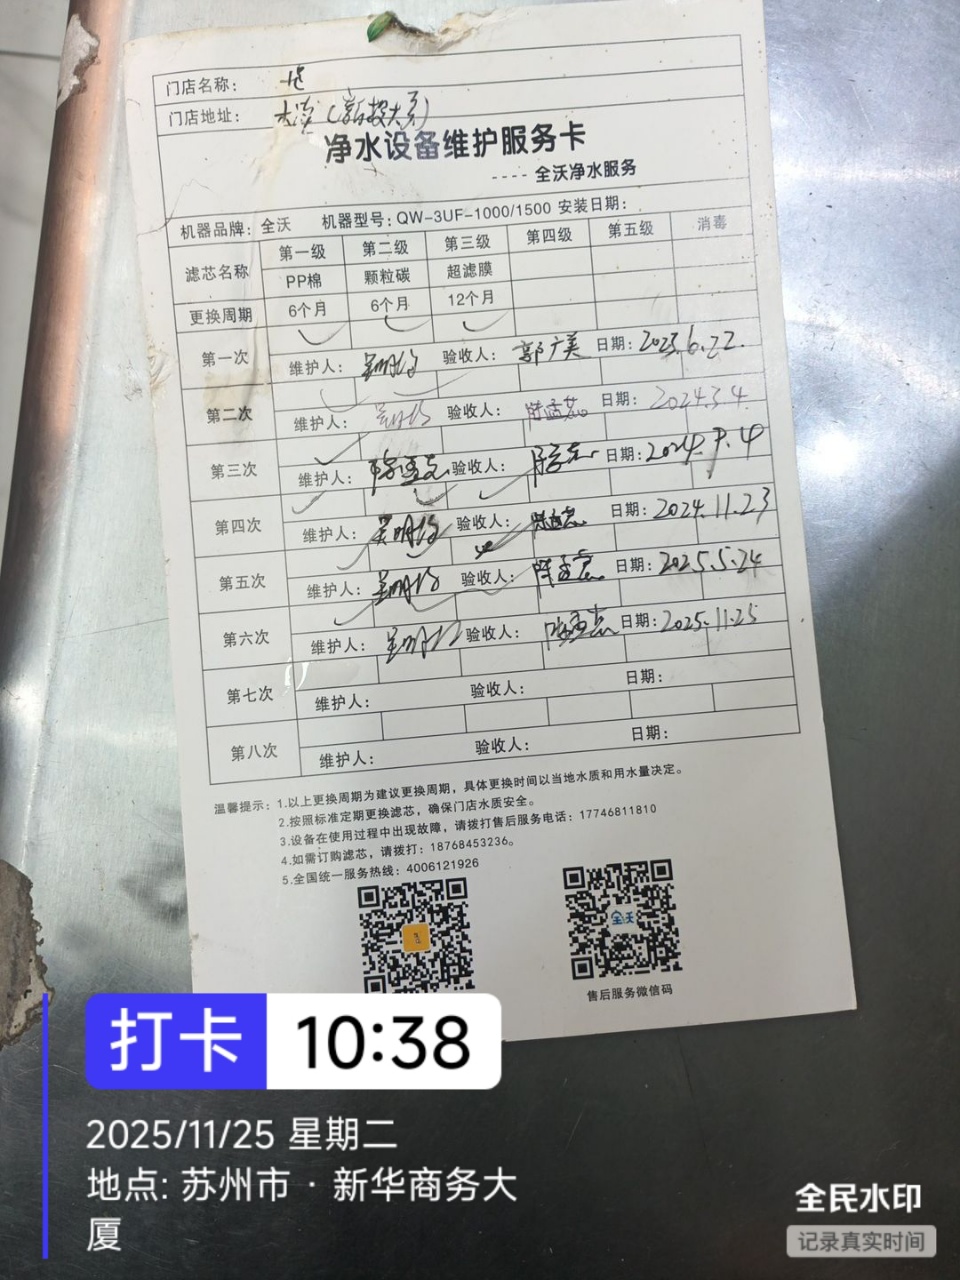 门店名称：
门店地址：
净水设备维护服务卡
---- 全沃净水服务
机器品牌：全沃 机器型号：QW-3UF-1000/1500 安装日期：
滤芯名称 第一级 第二级 第三级 第四级 第五级 消毒
PP棉 颗粒碳 超滤膜
更换周期 6个月 6个月 12个月
第一次 维护人： 验收人：郭广美 日期：2023.6.22.
第二次 维护人： 验收人： 日期：2024.3.4
第三次 维护人： 验收人： 日期：2024.9.4
第四次 维护人： 验收人： 日期：2024.11.23
第五次 维护人： 验收人： 日期：2025.5.24
第六次 维护人： 验收人： 日期：2025.11.25
第七次 维护人： 验收人： 日期：
第八次 维护人： 验收人： 日期：
温馨提示：1.以上更换周期为建议更换周期，具体更换时间以当地水质和用水量决定。
2.按照标准定期更换滤芯，确保门店水质安全。
3.设备在使用过程中出现故障，请拨打售后服务电话：17746811810
4.如需订购滤芯，请拨打：18768453236。
5.全国统一服务热线：4006121926
全沃
售后服务微信码
打卡 10:38
2025/11/25 星期二
地点: 苏州市·新华商务大
厦
全民水印
记录真实时间